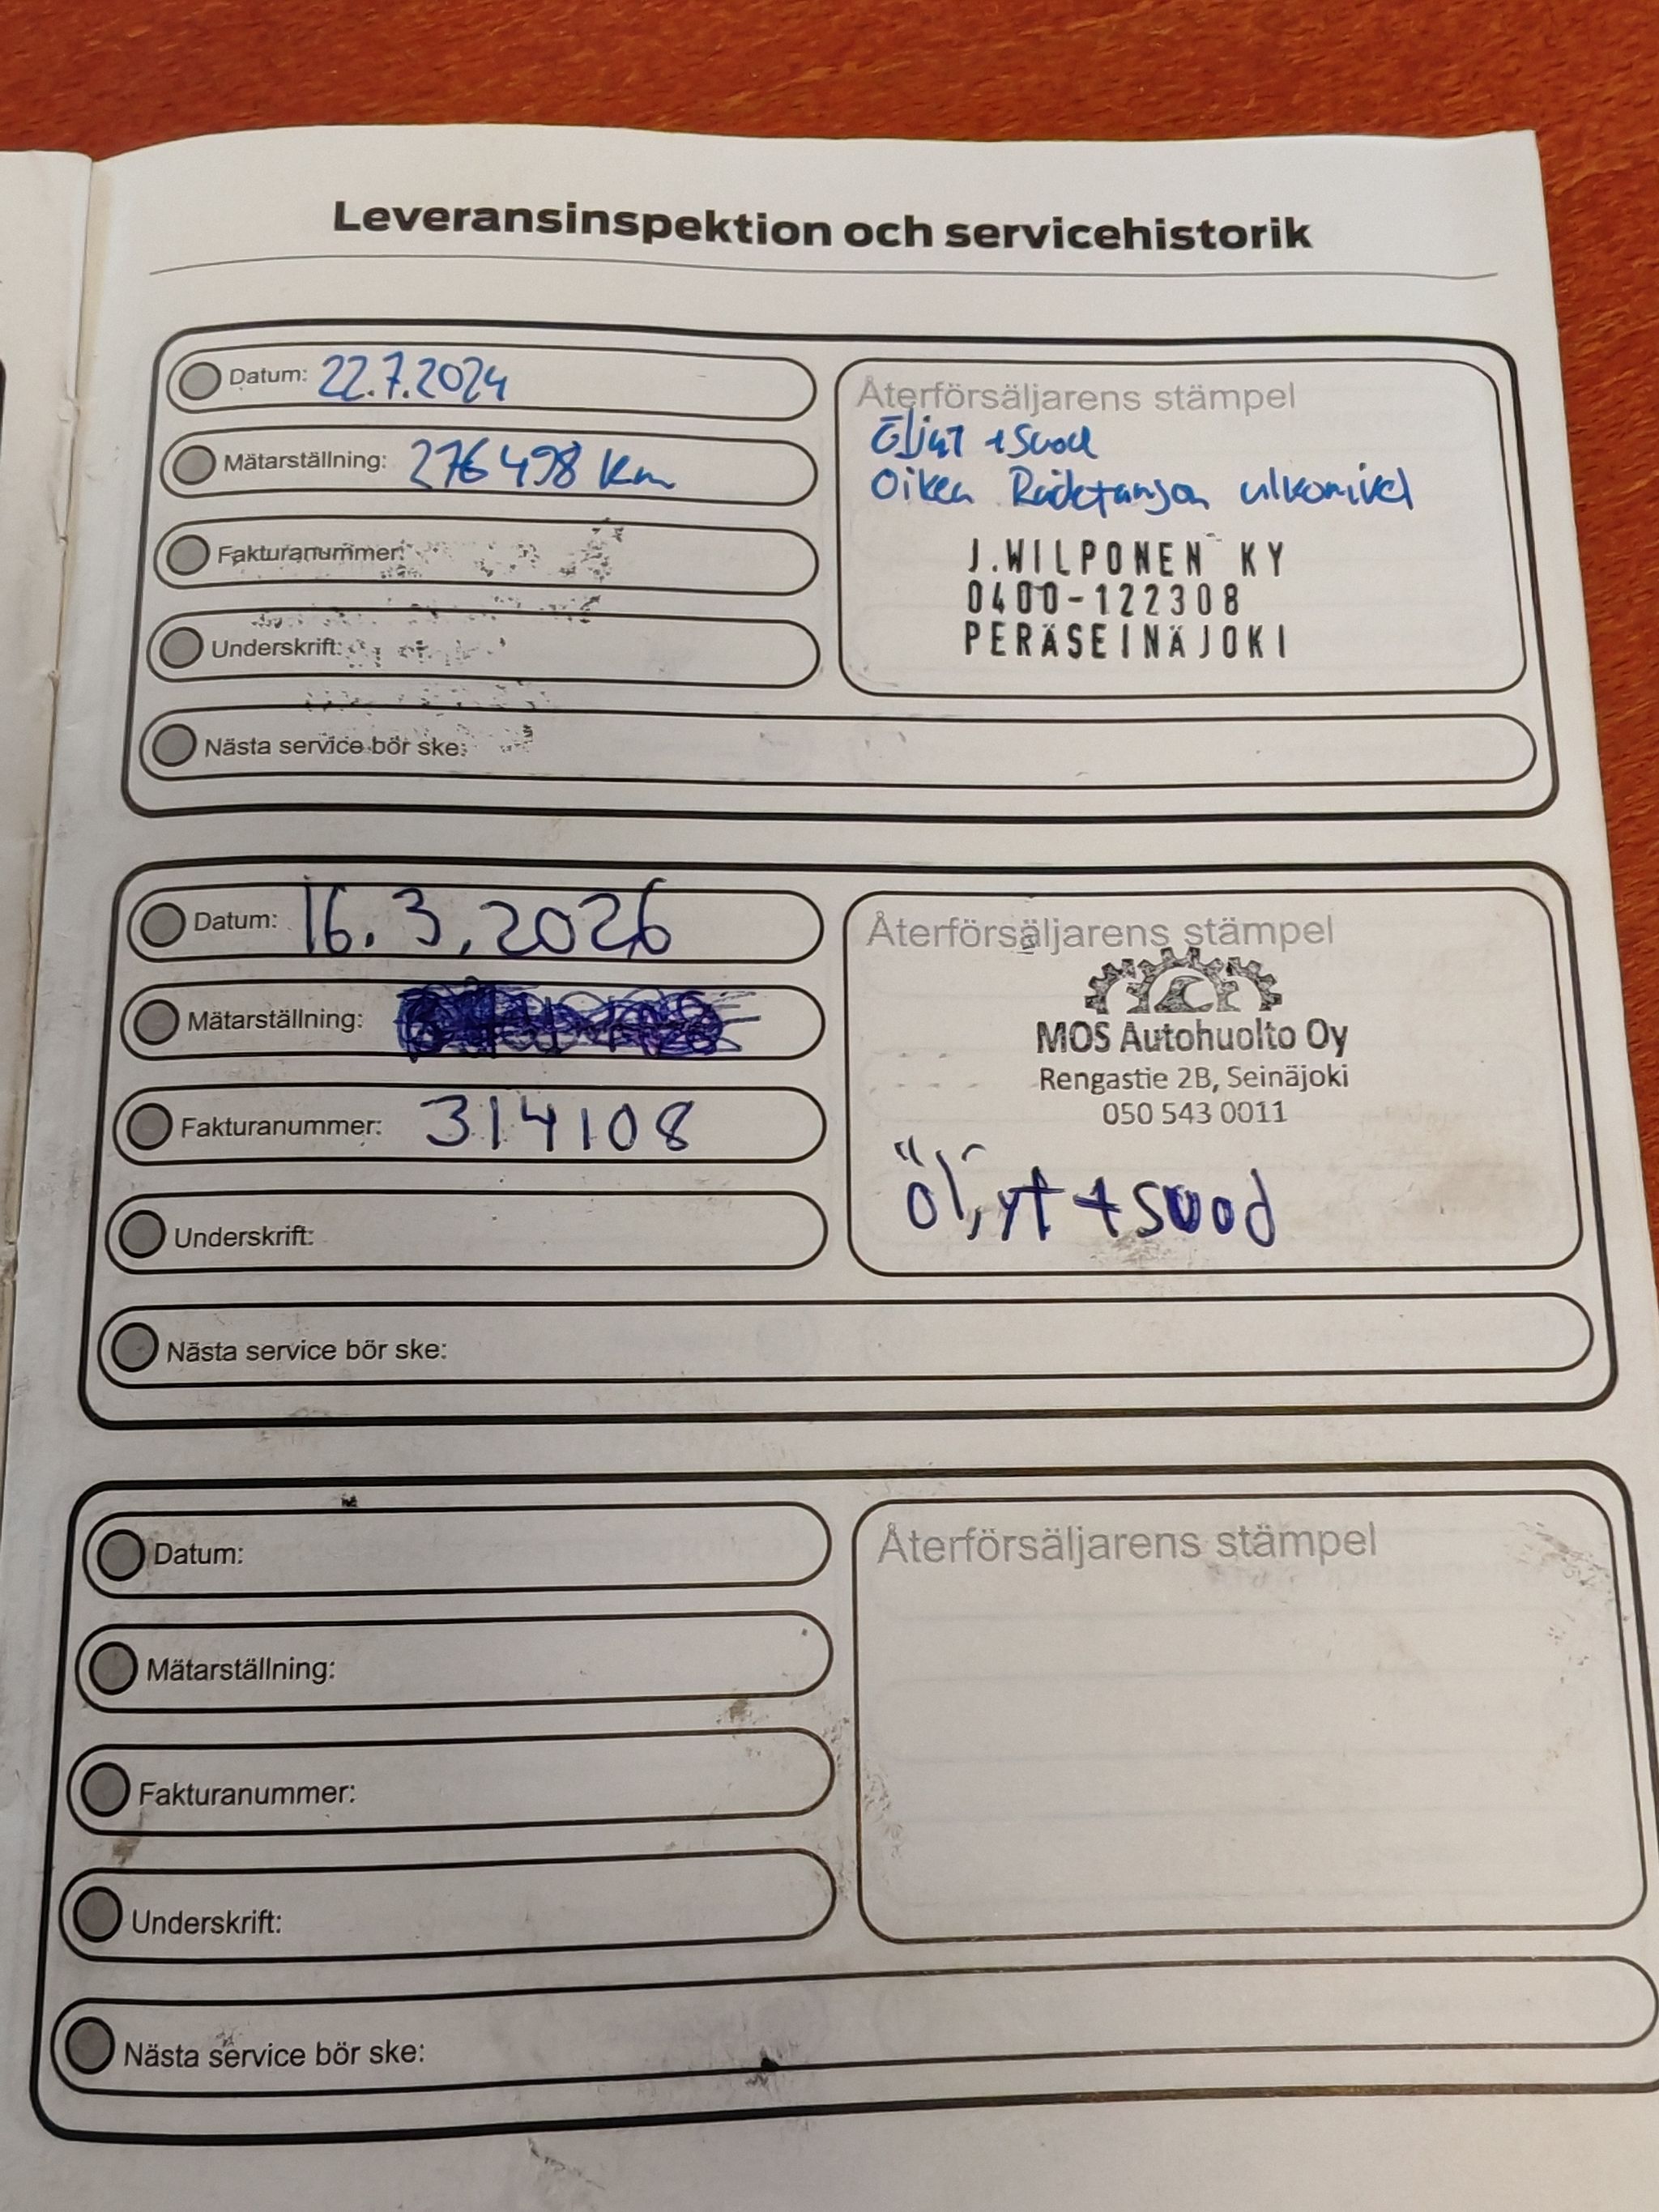 Leveransinspektion och servicehistorik
Datum: 22.7.2024
Mätarställning: 276498 Km
Fakturanummer:
Underskrift:
Nästa service bör ske:
Återförsäljarens stämpel
Öljyt +Suod
Oikea Raidetangon ulkonivel
J.WILPONEN KY
0400-122308
PERÄSEINÄJOKI
Datum: 16.3.2026
Mätarställning:
Fakturanummer: 314108
Underskrift:
Nästa service bör ske:
Återförsäljarens stämpel
MOS Autohuolto Oy
Rengastie 2B, Seinäjoki
050 543 0011
Öljyt +suod
Datum:
Mätarställning:
Fakturanummer:
Underskrift:
Nästa service bör ske:
Återförsäljarens stämpel